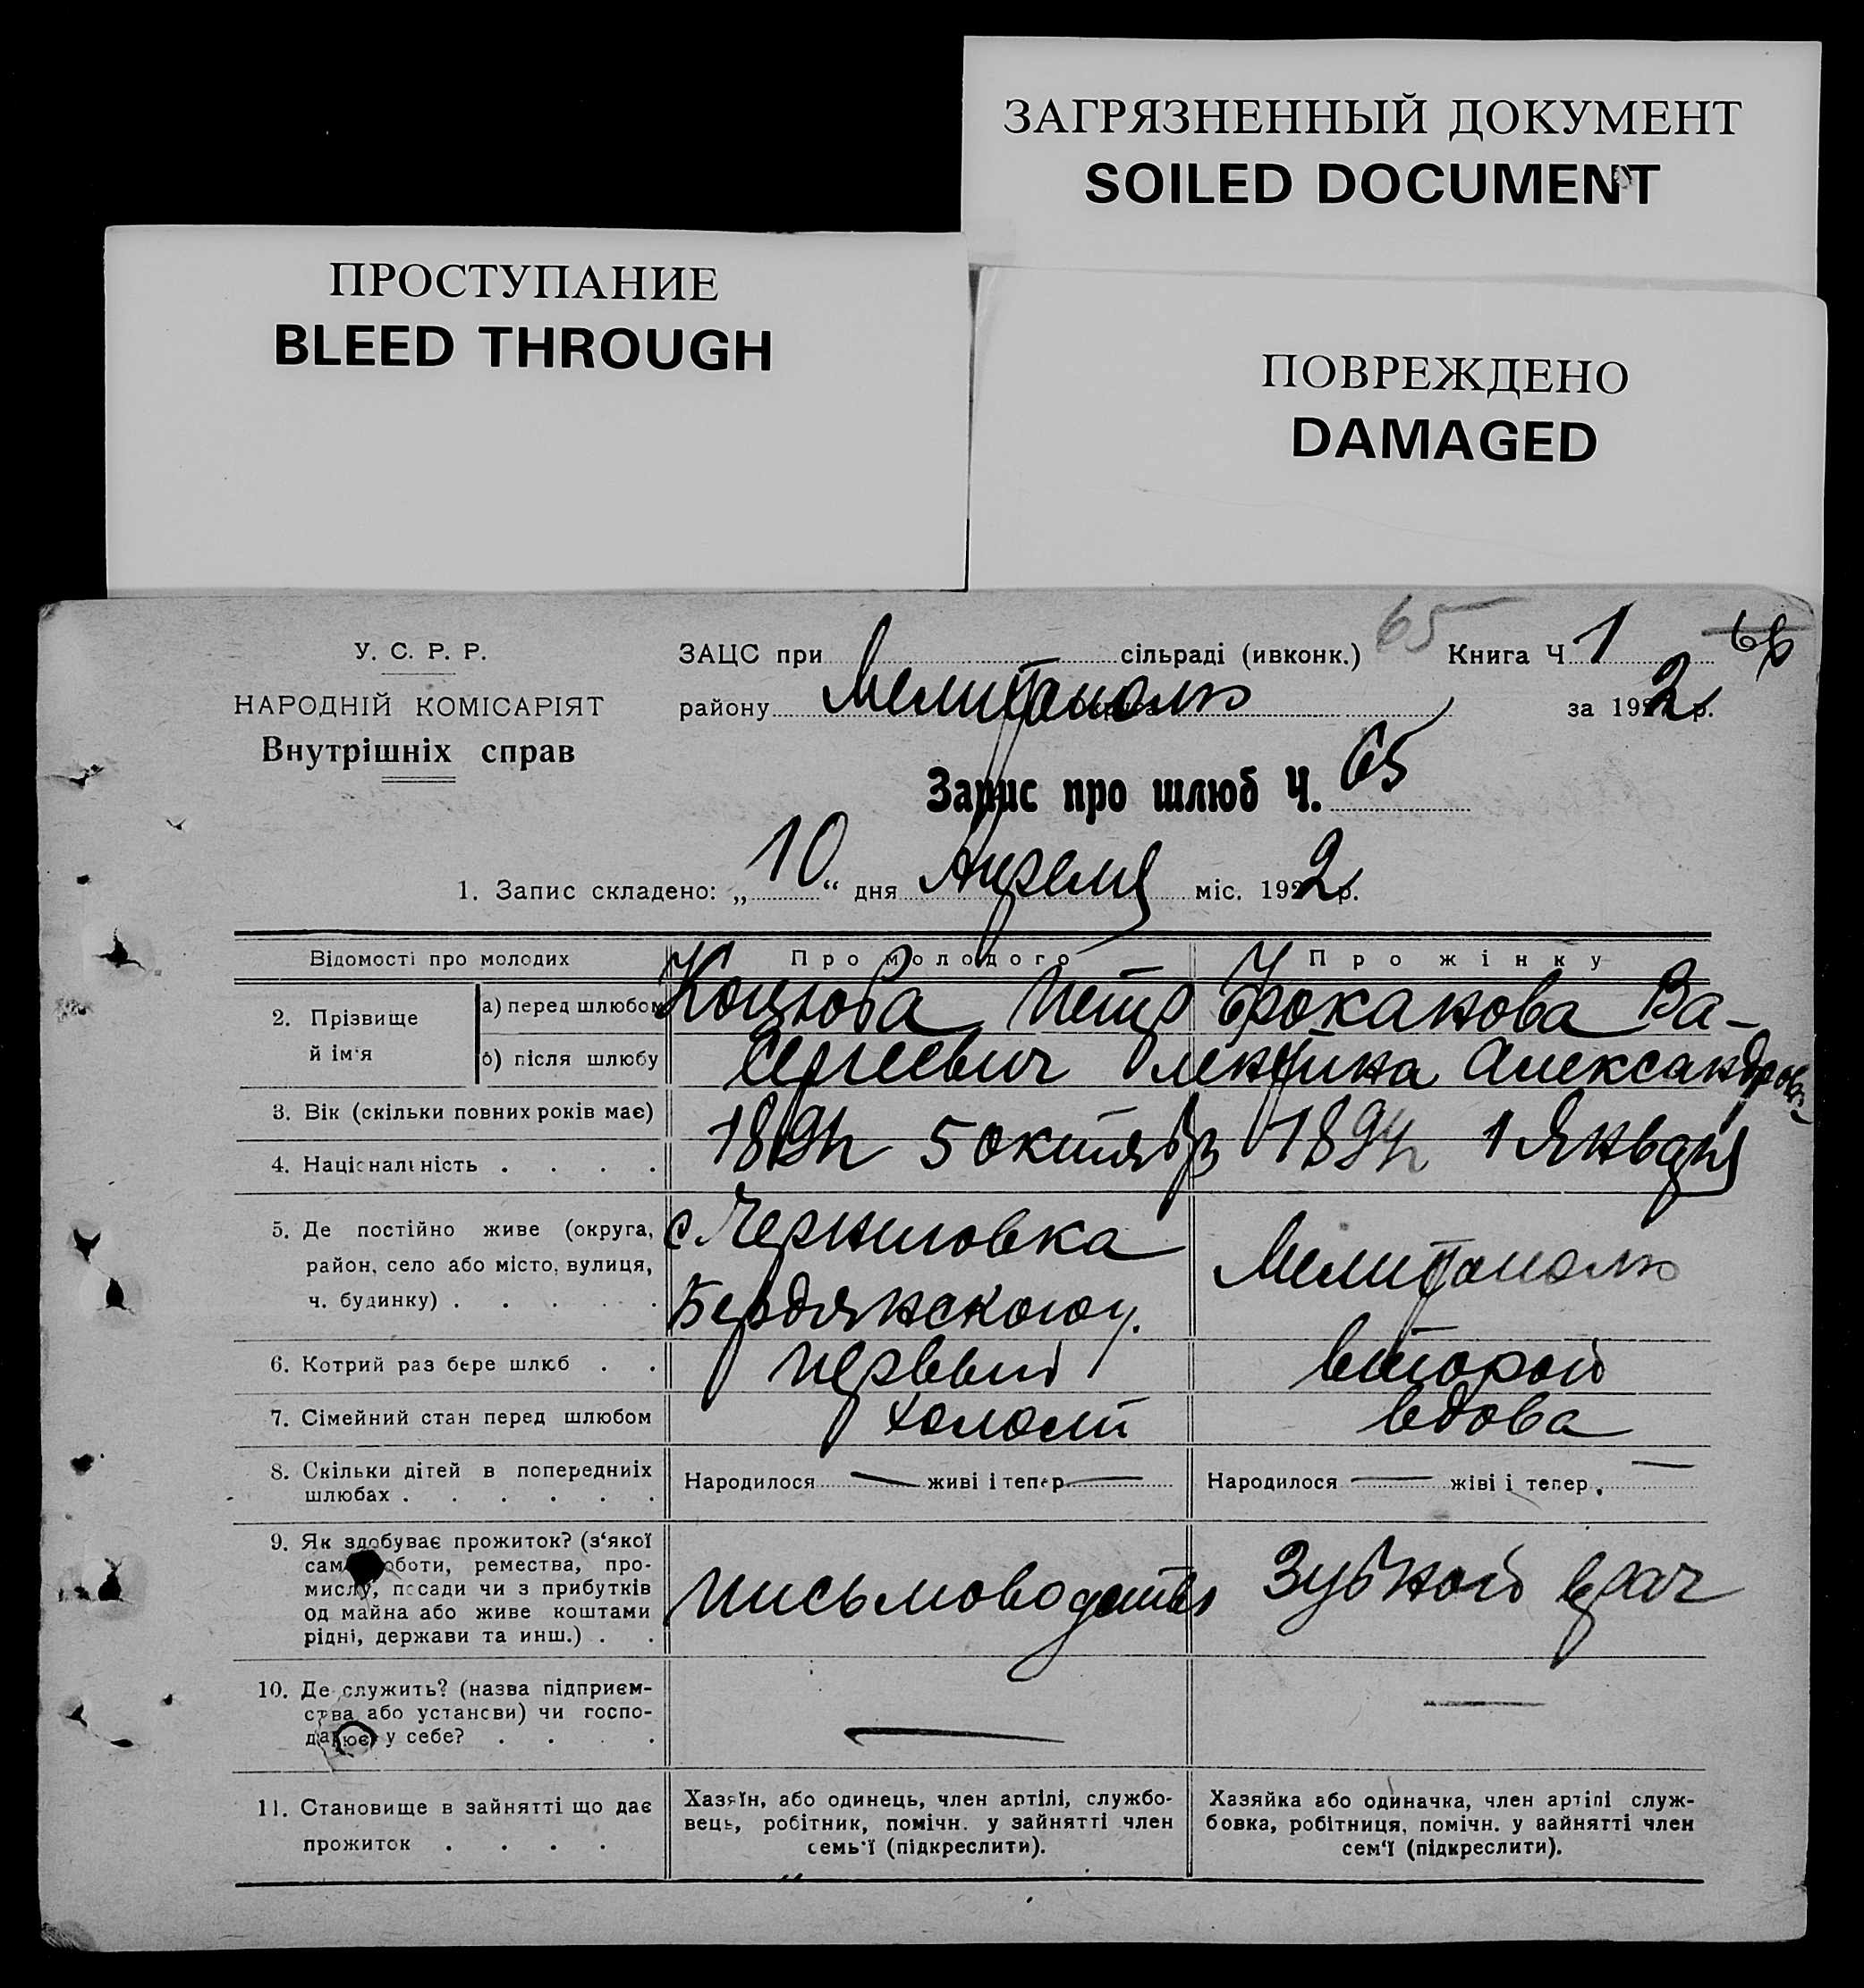 ЗАГРЯЗНЕННЫЙ ДОКУМЕНТ
SOILED DOCUMENT
ПРОСТУПАНИЕ
BLEED THROUGH
ПОВРЕЖДЕНО
DAMAGED
У. С. Р. Р.
НАРОДНІЙ КОМІСАРІЯТ
Внутрішніх справ
ЗАЦС при сільраді (ивконк.) 65 Книга Ч 1 66
району Мелитополь за 1922 р.
Запис про шлюб Ч. 65
1. Запис складено: „ 10 “ дня Апреля міс. 1922 р.
Відомості про молодих Про молодого Про жінку
2. Прізвище й ім'я а) перед шлюбом Коцюба Петр Ва-
б) після шлюбу Сергеевич лентина Александров
3. Вік (скільки повних років має)
4. Національність . . . . 5 октября 1 Января
5. Де постійно живе (округа, с. Черниговка
район, село або місто, вулиця, Мелитополь
ч. будинку) . . . . . Бердянского у.
6. Котрий раз бере шлюб . . первый второй
7. Сімейний стан перед шлюбом холост вдова
8. Скільки дітей в попередниіх Народилося — живі і тепер — Народилося — жіві і тепер —
шлюбах . . . . . .
9. Як здобуває прожиток? (з‘якої
сам оботи, ремества, про-
мислу, посади чи з прибутків письмоводитель Зубной врач
од майна або живе коштами
рідні, держави та инш.) . .
10. Де служить? (назва підприєм-
ства або установи) чи госпо- —
дарює у себе? . . . . —
11. Становище в зайнятті що дає
прожиток . . . .
Хазяїн, або одинець, член артілі, службо-
вець, робітник, помічн. у зайнятті член
семь'ї (підкреслити).
Хазяйка або одиначка, член артілі служ-
бовка, робітниця, помічн. у зайнятті член
сем'ї (підкреслити).